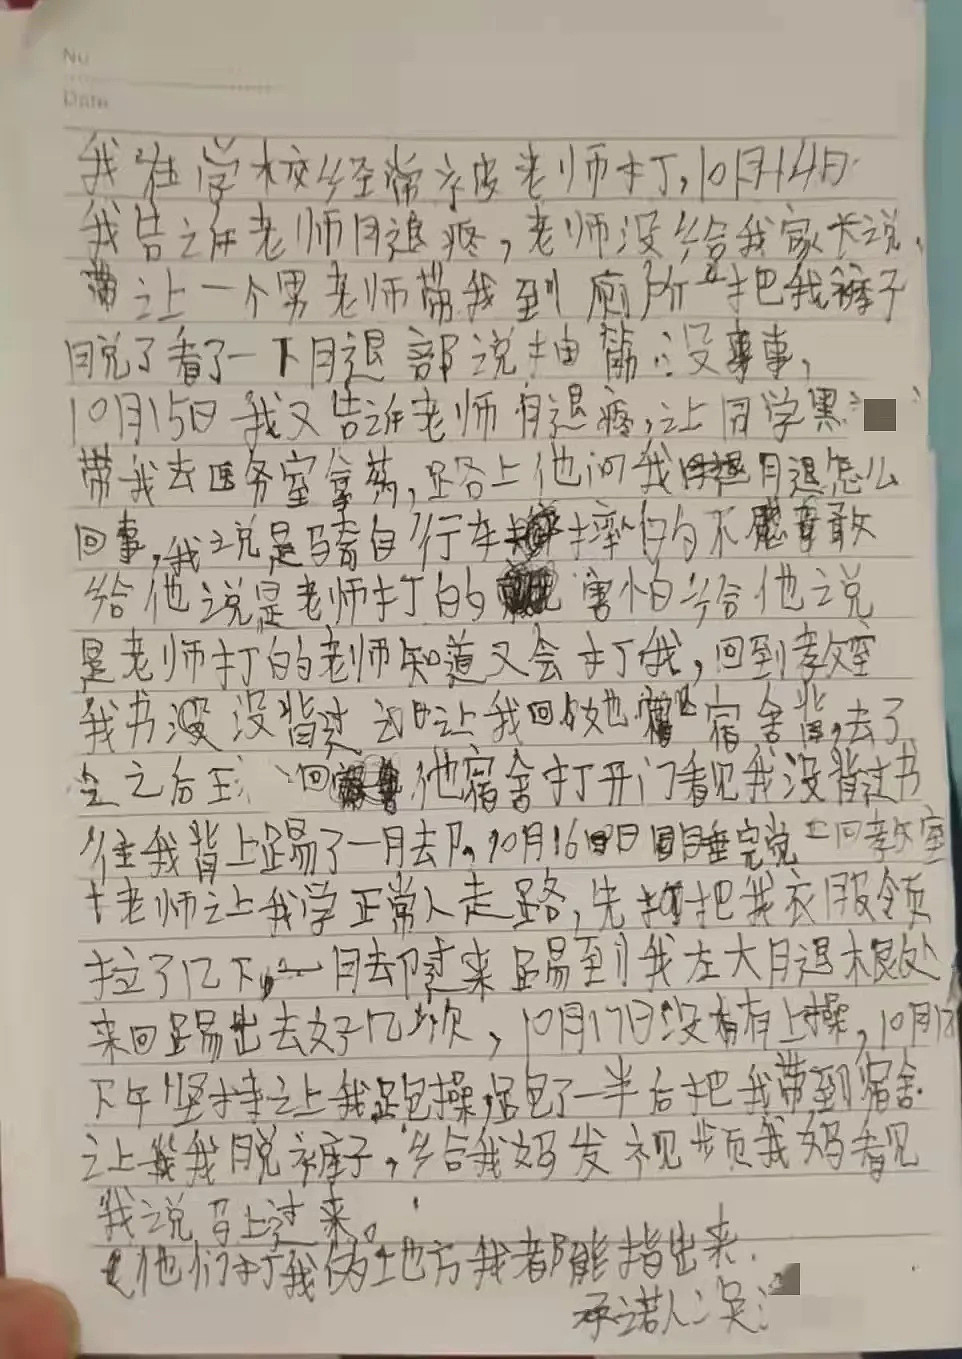 No
Date
我在学校经常被老师打,10月14日
我告诉老师腿疼,老师没给我家长说,
让一个男老师带我到厕所把我裤子
脱了看了一下腿部说抽筋没事,
10月15日我又告诉老师腿疼,让同学黑
带我去医务室拿药,路上他问我腿怎么
回事,我说是骑自行车摔的不敢
给他说是老师打的害怕给他说
是老师打的老师知道又会打我,回到教室
我书没背过让我回他宿舍背,去了
之后回他宿舍打开门看见我没背过书
往我背上踢了一脚。10月16日睡完回教室
老师让我学正常人走路,先把我衣服领
拉了几下,一脚过来踢到我左大腿根处
来回踢出去好几次,10月17日没有上操,10月18
下午坚持让我跑操,跑了一半后把我带到宿舍
让我脱裤子,给我妈发视频我妈看见
我说马上过来。
他们打我的地方我都能指出来.
承诺人:吴